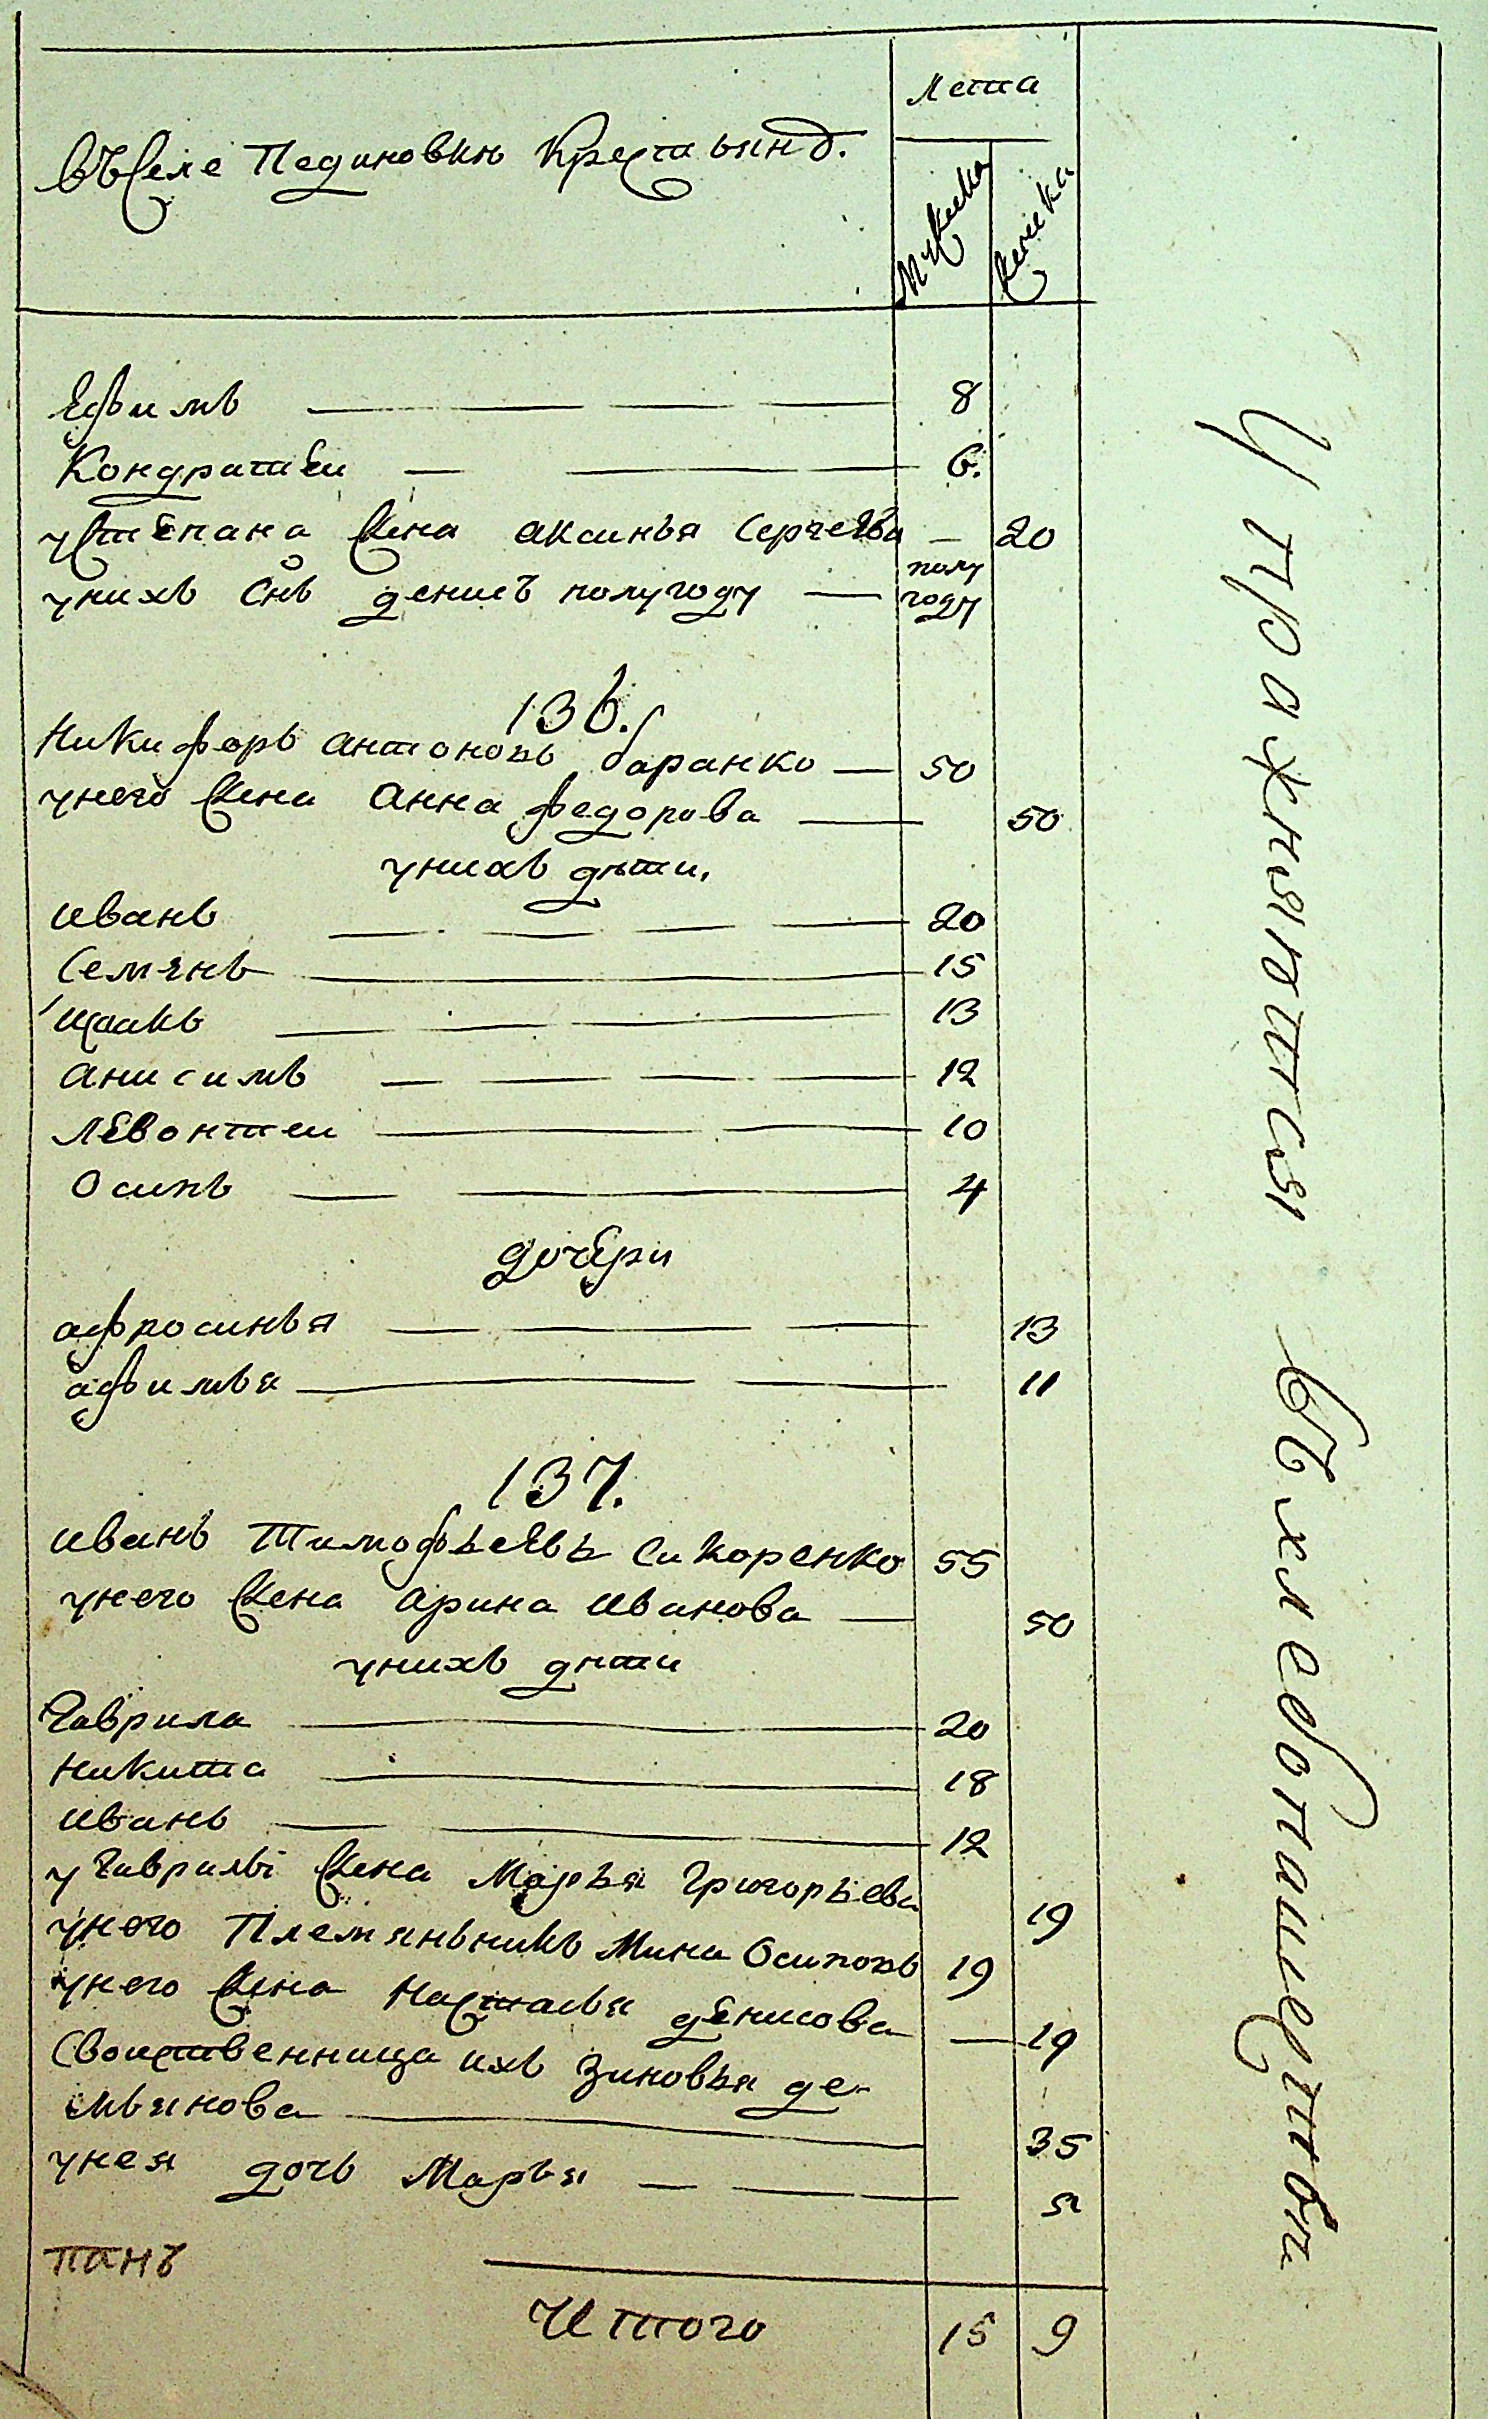 въ селе Пединовки крестьянъ.
Лета
Мужеска
Женска
Ефимъ 8
Кондратеи 6.
у степана жена аксинья сергеева 20
у нихъ снъ денисъ полугоду полу
году
136.
Никифоръ антоновъ баранко 50
у него жена Анна федорова 50
у нихъ дѣти.
иванъ 20
семенъ 15
исаакъ 13
анисимъ 12
левонтеи 10
осипъ 4
дочери
афросинья 13
афимья 11
137.
иванъ Тимофьевъ сикоренко 55
у него жена арина иванова 50
у нихъ дѣти
Гаврила 20
никита 18
иванъ 12
у гаврилы жена Марья григорьева 19
у него Племяньникъ Мина осиповъ 19
у него жена настасья денисова 19
своиственница ихъ зиновья де-
мьянова 35
у нея дочь Марья 5
панъ
Итого 15 9
Упражняются въ хлебопашествѣ